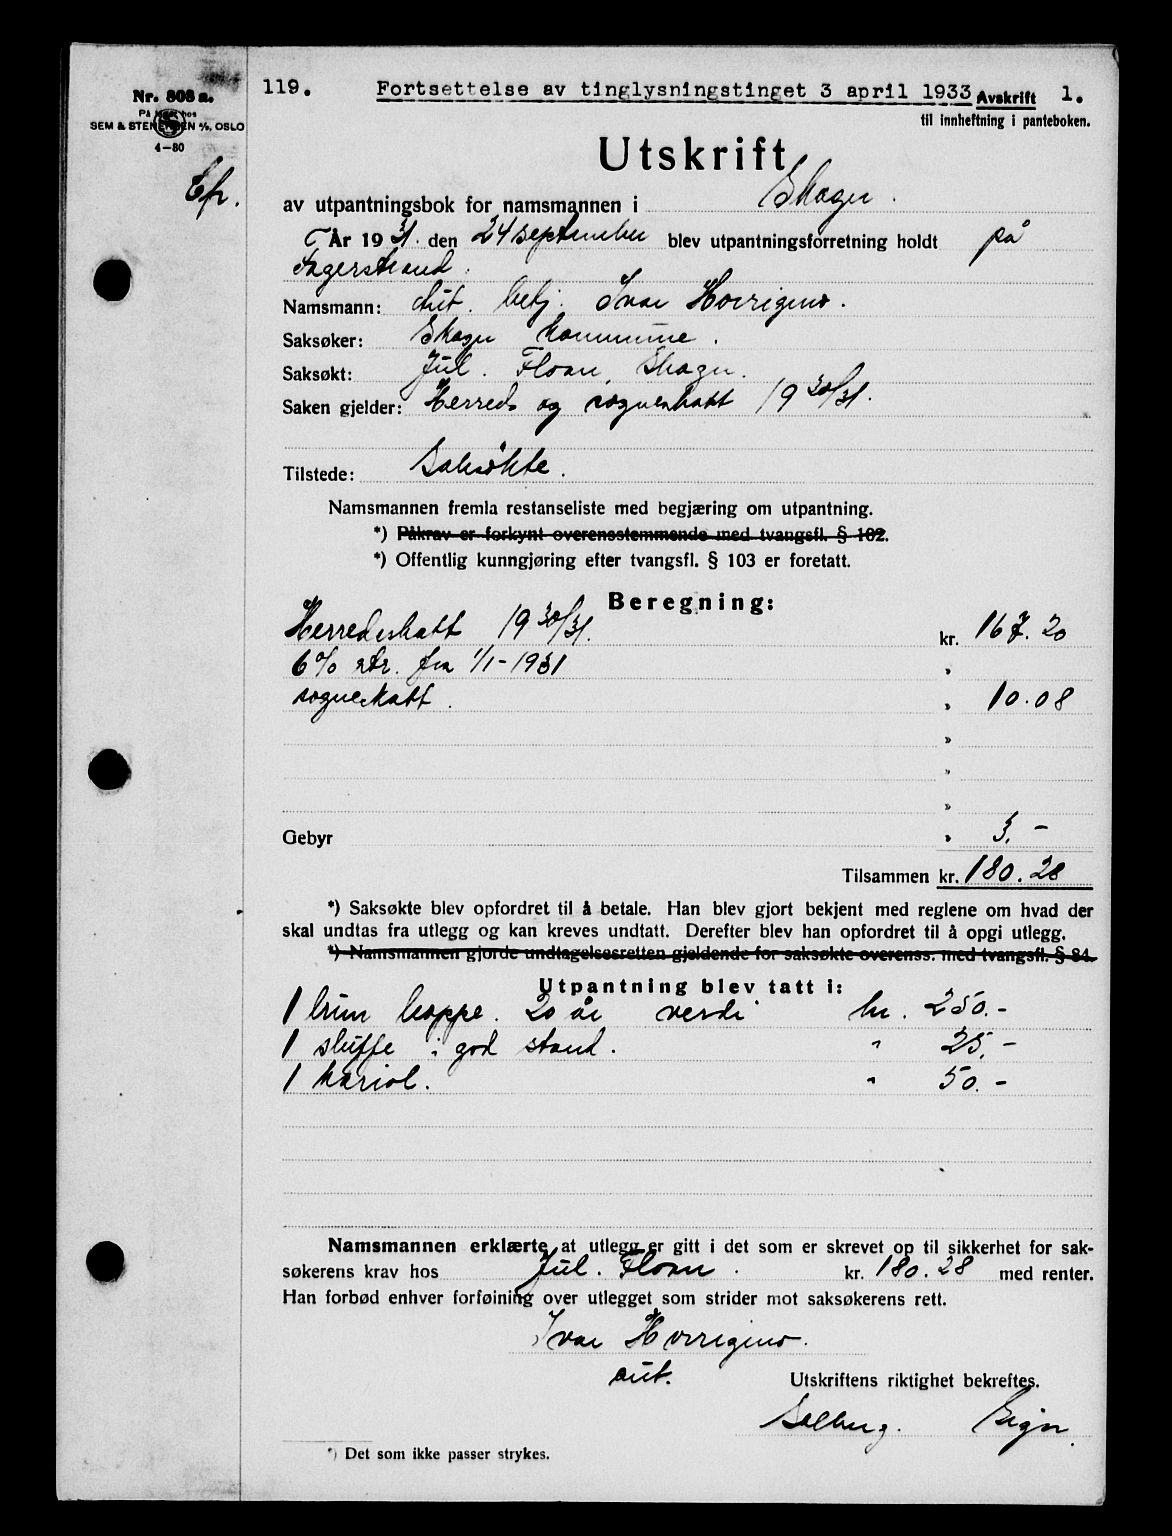 Nr. 808 a.
På lager hos
SEM & STENERSEN A/S, OSLO
4-30
119. Fortsettelse av tinglysningstinget 3 april 1933 Avskrift 1.
til innheftning i panteboken.
Utskrift
av utpantningsbok for namsmannen i Skogn.
År 1931. den 24 september blev utpantningsforretning holdt på
Fagerstrand.
Namsmann: Aut. betj. Ivar
Saksøker: Skogn kommune.
Saksøkt: Jul. Floan, Skogn.
Saken gjelder: Herreds og sogneskatt 1930/31.
Tilstede: Saksøkte.
Namsmannen fremla restanseliste med begjæring om utpantning.
*) Påkrav er forkynt overensstemmende med tvangsfl. § 102.
*) Offentlig kunngjøring efter tvangsfl. § 103 er foretatt.
Beregning:
Herredsskatt 1930/31. kr. 167.20
6% rtr. fra 1/1-1931 "
sogneskatt. " 10.08
"
"
"
Gebyr " 3.-
Tilsammen kr. 180.28
*) Saksøkte blev opfordret til å betale. Han blev gjort bekjent med reglene om hvad der
skal undtas fra utlegg og kan kreves undtatt. Derefter blev han opfordret til å opgi utlegg.
*) Namsmannen gjorde undtagelsesretten gjeldende for saksøkte overenss. med tvangsfl. § 84.
Utpantning blev tatt i:
1 brun hoppe. 20 år verdi kr. 250.-
1 sluffe i god stand. " 25.-
1 kariol. " 50.-
Namsmannen erklærte at utlegg er gitt i det som er skrevet op til sikkerhet for sak-
søkerens krav hos Jul. Floan. kr. 180.28 med renter.
Han forbød enhver forføining over utlegget som strider mot saksøkerens rett.
Ivar
aut.
Utskriftens riktighet bekreftes.
Solberg. Sign.
*) Det som ikke passer strykes.